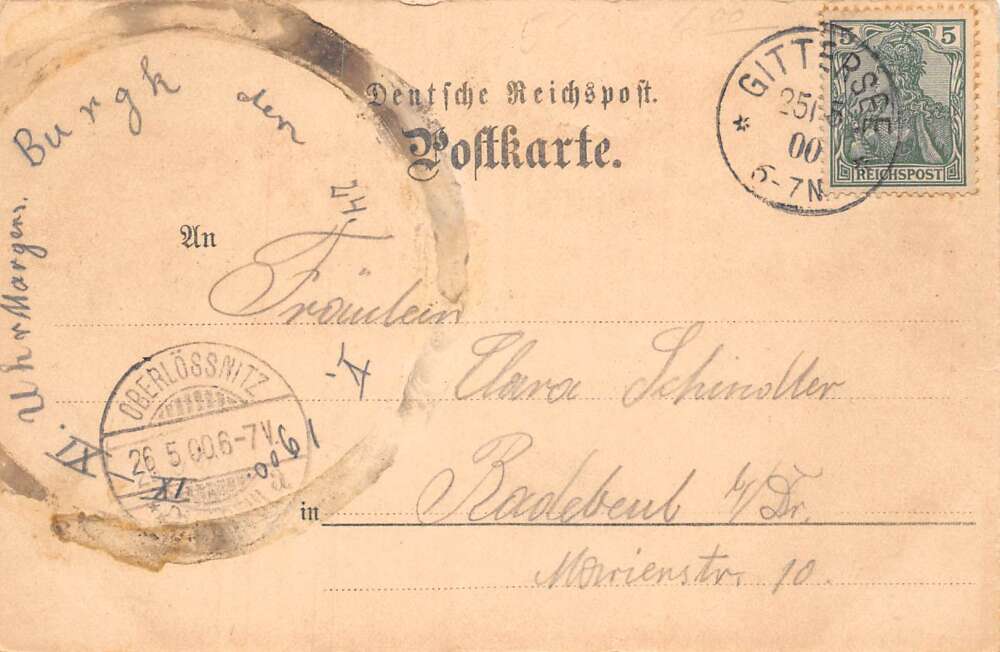 Deutsche Reichspost.
Postkarte.
5 5
REICHSPOST
* GITTERSEE
25/5
00
6-7N
An
Fräulein
Clara Schindler
in Radebeul b/Dr.
Marienstr. 10.
Burgk den 24.
V.
1900.
XI.
Uhr Morgens.
OBERLÖSSNITZ
26.5.00.6-7V.